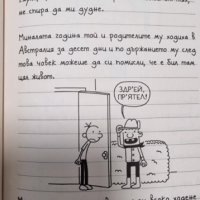 не спира да ми дудне.
Миналата година той и родителите му ходиха в
Австралия за десет дни и по държанието му след
това човек можеше да си помисли, че е бил там
цял живот.
ЗДР'ЕЙ,
ПР'ЯТЕЛ!